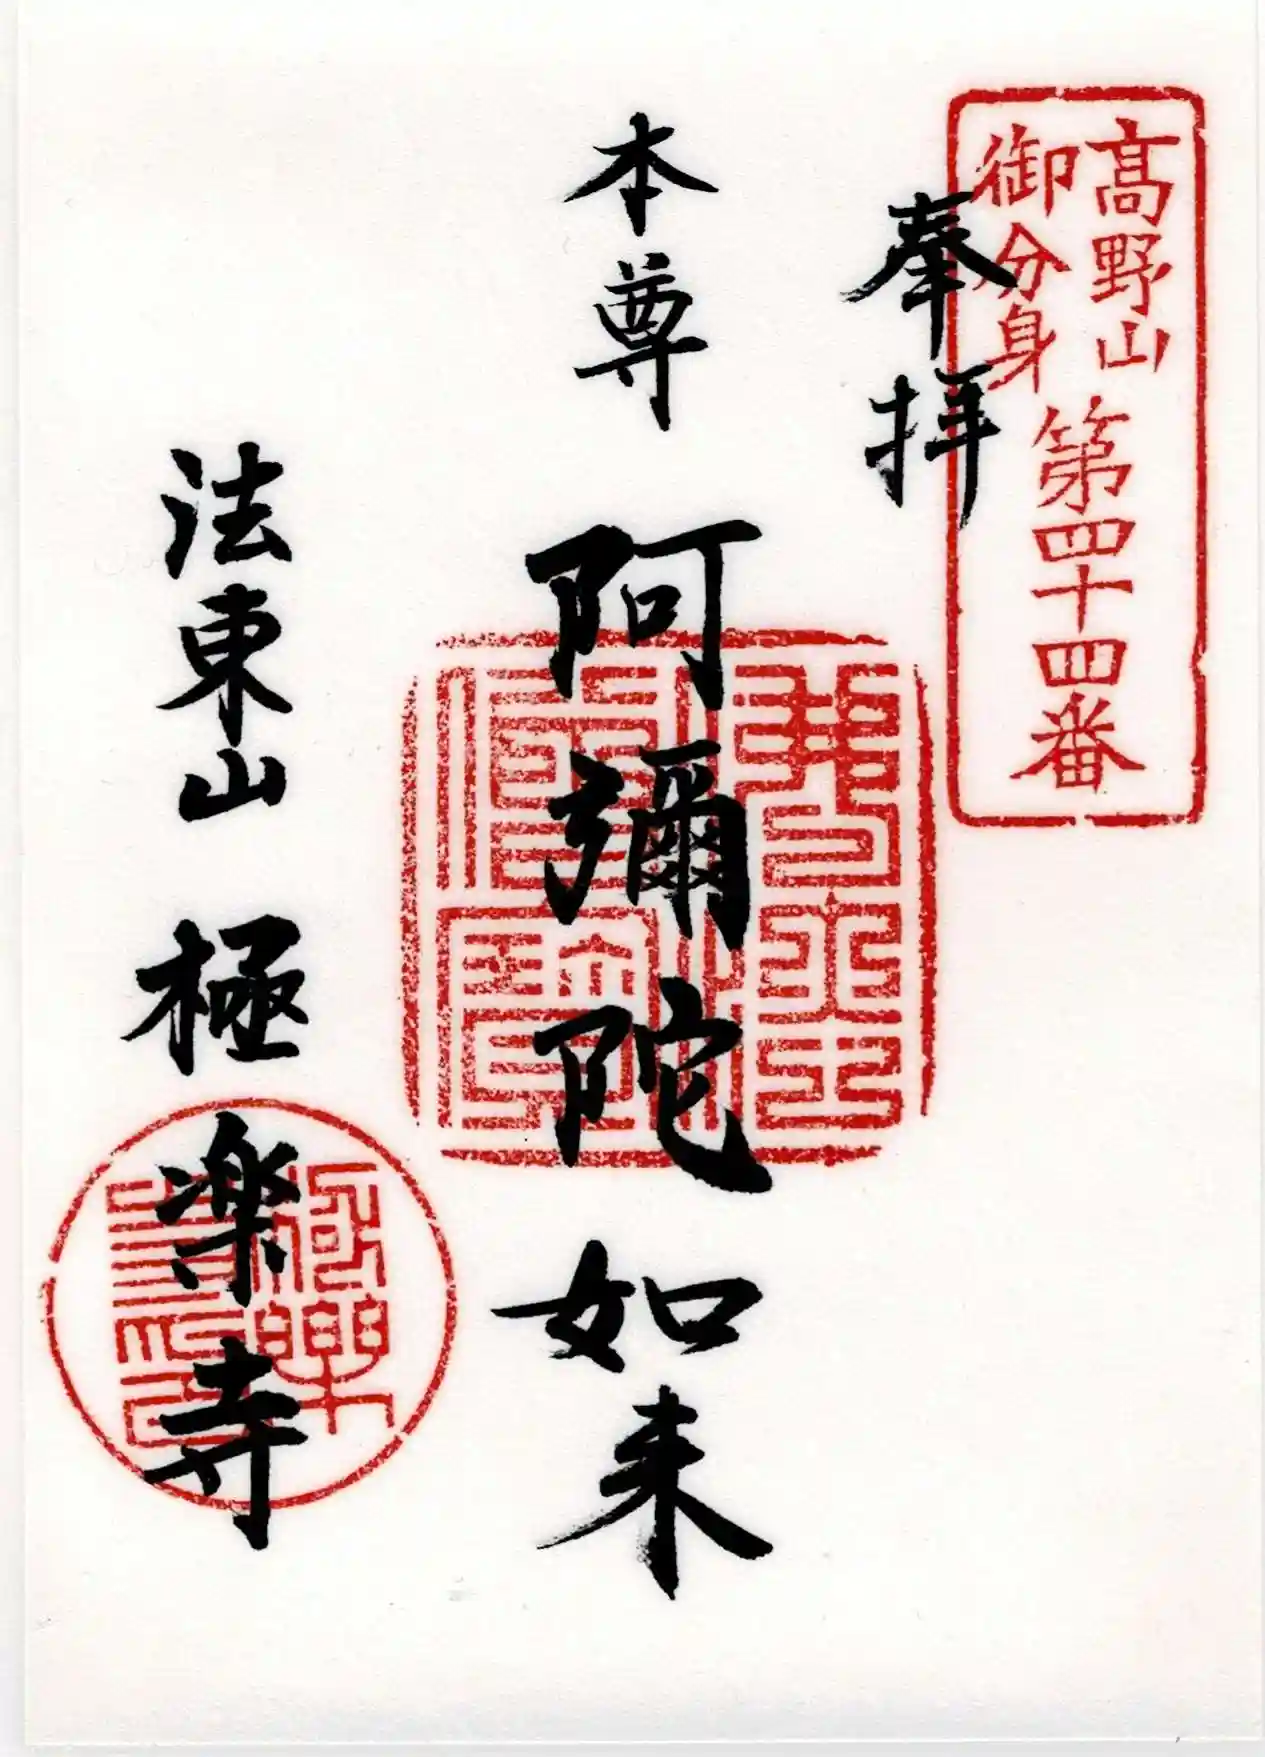 髙野山
御分身
第四十四番
奉拝
本尊 阿彌陀如来
法東山 極楽寺